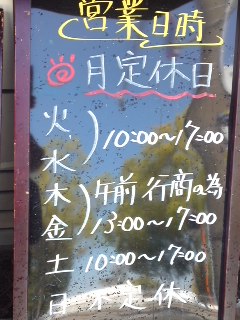 営業日時
月定休日
火
水
10:00〜17:00
木
金
午前 行商の為
13:00〜17:00
土 10:00〜17:00
日 不定休